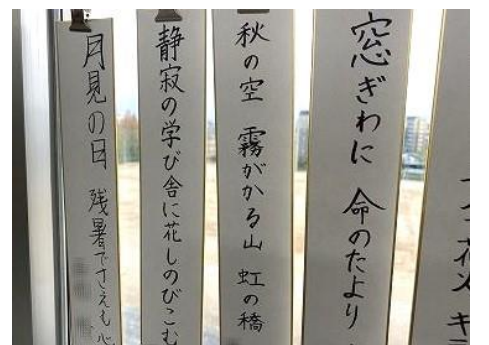 花火 キ
窓ぎわに 命のたより
秋の空 霧がかる山 虹の橋
静寂の学び舎に花しのびこむ
月見の日 残暑でさえも心